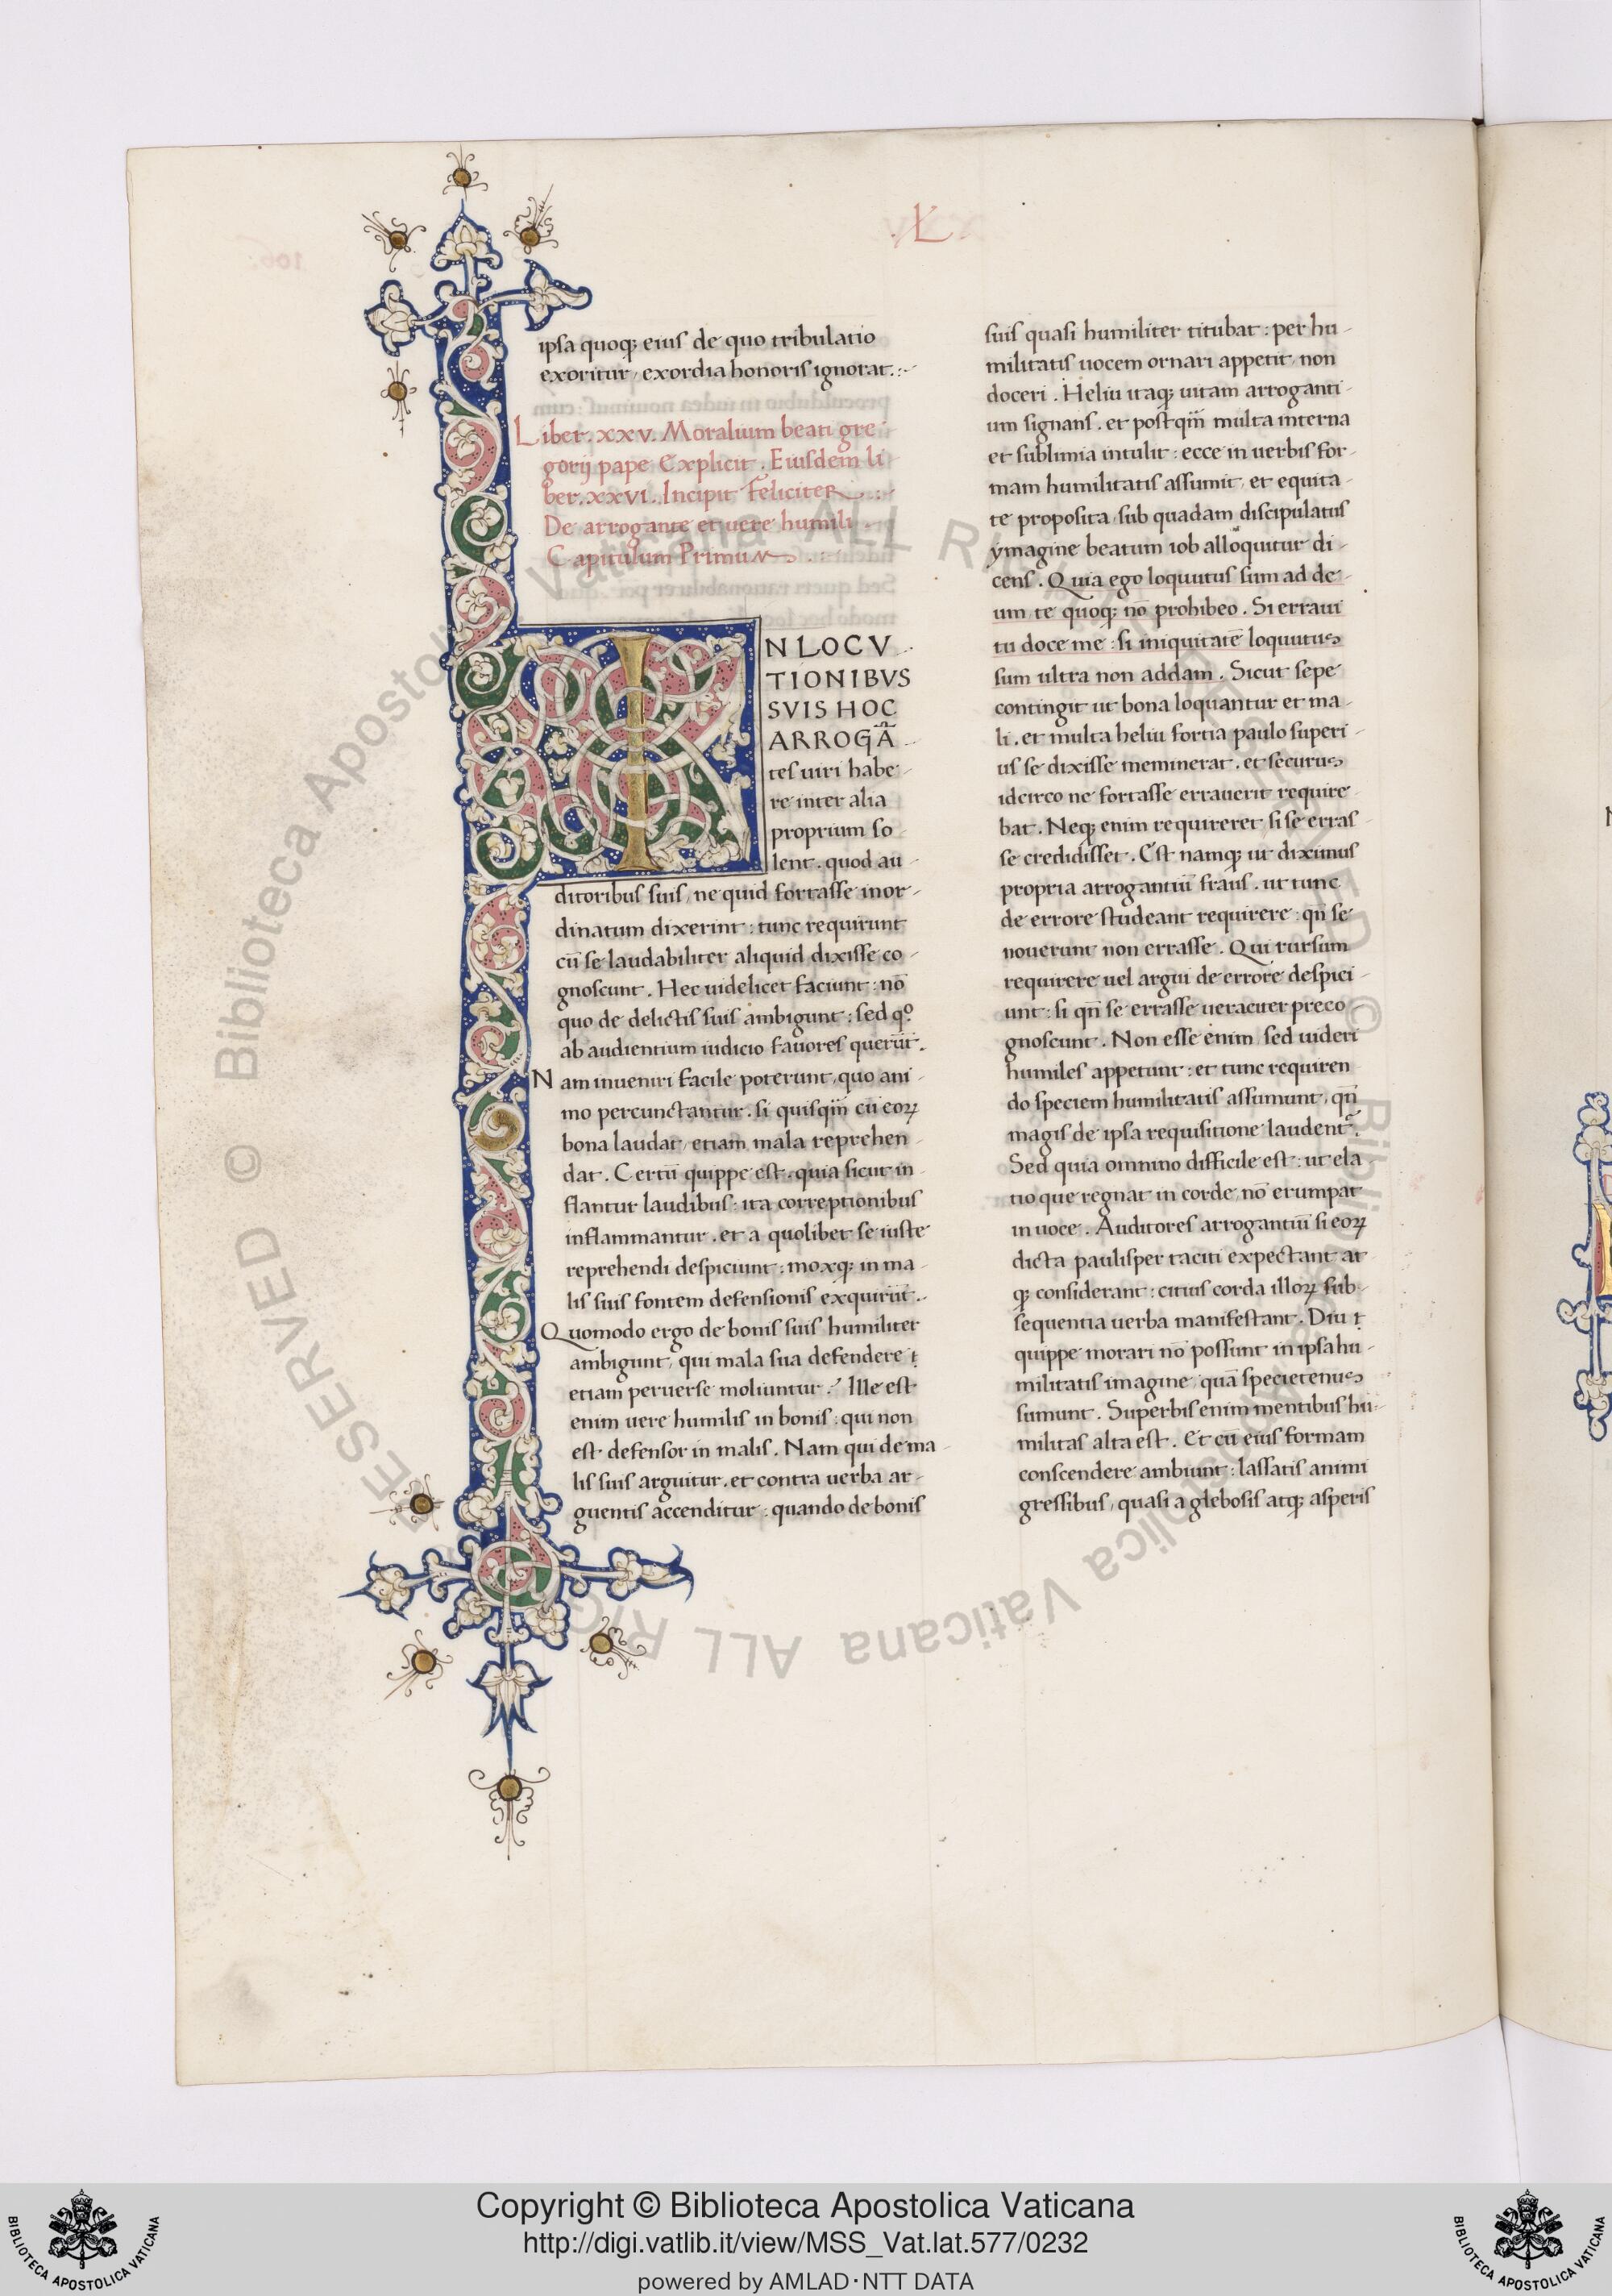 .L.
ipsa quoq; eius de quo tribulatio
exoritur, exordia honoris ignorat.:~
Liber. xxv. Moralium beati gre
gorij pape Explicit. Eiusdem li
ber. xxvi. Incipit Feliciter
De arrogante et uere humili.
Capitulum Primum
IN LOCV
TIONIBVS
SVIS HOC
ARROGĀ
tes uiri habe-
re inter alia
proprium so-
lent. quod au-
ditoribus suis, ne quid fortasse inor-
dinatum dixerint: tunc requirunt
cū se laudabiliter aliquid dixisse co-
gnoscunt. Hec uidelicet faciunt: nō
quo de delictis suis ambigunt: sed qº
ab audientium iudicio fauores querūt.
Nam inueniri facile poterunt, quo ani-
mo percunctantur. si quisqm̄ cū eoꝝ
bona laudat, etiam mala reprehen
dat. Certū quippe est. quia sicut in-
flantur laudibus: ita correptionibus
inflammantur. et a quolibet se iuste
reprehendi despiciunt: moxq; in ma-
lis suis fontem defensionis exquirūt.
Quomodo ergo de bonis suis humiliter
ambigunt, qui mala sua defendere
etiam peruerse moliuntur? Ille est
enim uere humilis in bonis: qui non
est defensor in malis. Nam qui de ma-
lis suis arguitur. et contra uerba ar-
guentis accenditur: quando de bonis
suis quasi humiliter titubat: per hu-
militatis uocem ornari appetit, non
doceri. Heliu itaq; uitam arroganti-
um signans. et postqm̄ multa interna
et sublimia intulit: ecce in uerbis for-
mam humilitatis assumit, et equita-
te proposita, sub quadam discipulatus
ymagine beatum iob alloquitur di-
cens. Quia ego loquutus sum ad de-
um te quoq; nō prohibeo. Si erraui
tu doce me: si iniquitatē loquutus
sum ultra non addam. Sicut sepe
contingit ut bona loquantur et ma-
li. et multa heliu fortia paulo superi-
us se dixisse meminerat. et securus
idcirco ne fortasse errauerit require-
bat. Neq; enim requireret si se erras-
se credidisset. Est namq; ut diximus
propria arrogantiū fraus. ut tunc
de errore studeant requirere: qn̄ se
nouerunt non errasse. Qui rursum
requirere uel argui de errore despici-
unt: si qn̄ se errasse ueraciter preco-
gnoscunt. Non esse enim, sed uideri
humiles appetunt: et tunc requiren
do speciem humilitatis assumunt, qn̄
magis de ipsa requisitione laudent.
Sed quia omnino difficile est: ut ela
tio que regnat in corde, nō erumpat
in uoce. Auditores arrogantiū si eoꝝ
dicta paulisper taciti expectant at
q; considerant: citius corda illoꝝ sub-
sequentia uerba manifestant. Diu
quippe morari nō possunt in ipsa hu-
militatis imagine, quā specietenus
sumunt. Superbis enim mentibus hu-
militas alta est. Et cū eius formam
conscendere ambiunt: lassatis animi
gressibus, quasi a glebosis atq; asperis
© Biblioteca Apostolica Vaticana ALL RIGHTS RESERVED
Copyright © Biblioteca Apostolica Vaticana
http://digi.vatlib.it/view/MSS_Vat.lat.577/0232
powered by AMLAD·NTT DATA
BIBLIOTECA APOSTOLICA VATICANA
BIBLIOTECA APOSTOLICA VATICANA